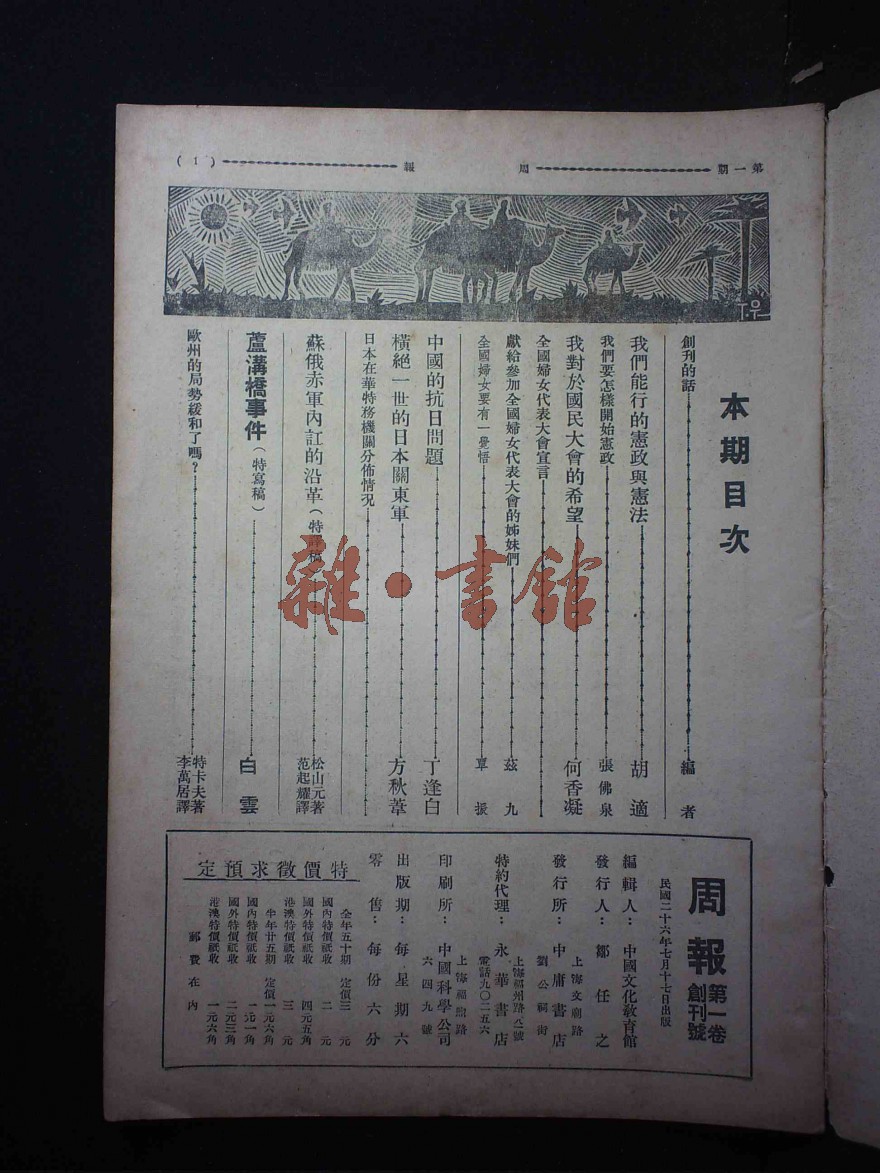 第一期 周報 (1)
T.O
本期目次
創刊的話 編者
我們能行的憲政與憲法 胡適
我們要怎樣開始憲政 張佛泉
我對於國民大會的希望 何香凝
全國婦女代表大會宣言
獻給參加全國婦女代表大會的姊妹們 茲九
全國婦女要有一覺悟 覃振
中國的抗日問題 丁逢白
橫絕一世的日本關東軍 方秋葦
日本在華特務機關分佈情況
蘇俄赤軍內訌的沿革(特譯稿) 松山元著 范起耀譯
蘆溝橋事件(特寫稿) 白雲
歐州的局勢緩和了嗎? 特卡夫著 李萬居譯
雜·書館
周報 第一卷 創刊號
民國二十六年七月十七日出版
編輯人:中國文化教育館
發行人:鄒任之
上海文廟路
發行所:中庸書店
劉公祠街
上海福州路八一號
特約代理:永華書店
電話九〇二五六
上海福煦路
印刷所:中國科學公司
六四九號
出版期:每星期六
零售:每份六分
特價徵求預定
全年五十期 定價三元
國內特價祇收 二元
國外特價祇收 四元五角
港澳特價祇收 三元
半年廿五期 定價一元六角
國內特價祇收 一元一角
國外特價祇收 二元三角
港澳特價祇收 一元六角
郵費在內